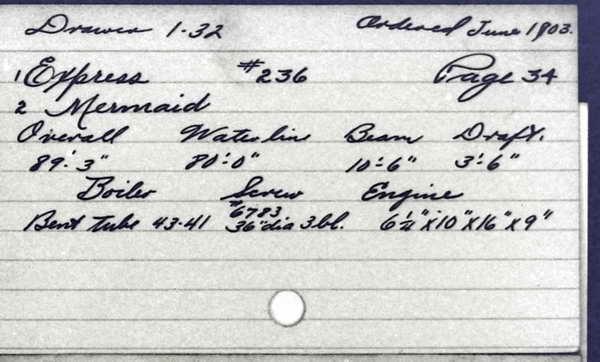 Drawer 1-32 Ordered June 1903.
1 Express #236 Page 34
2 Mermaid
Overall Water line Beam Draft.
89'-3" 80'-0" 10'-6" 3'-6"
Boiler Screw Engine
#6783
Bent tube 43-41 36" dia 3 bl. 6½"x10"x16"x9"